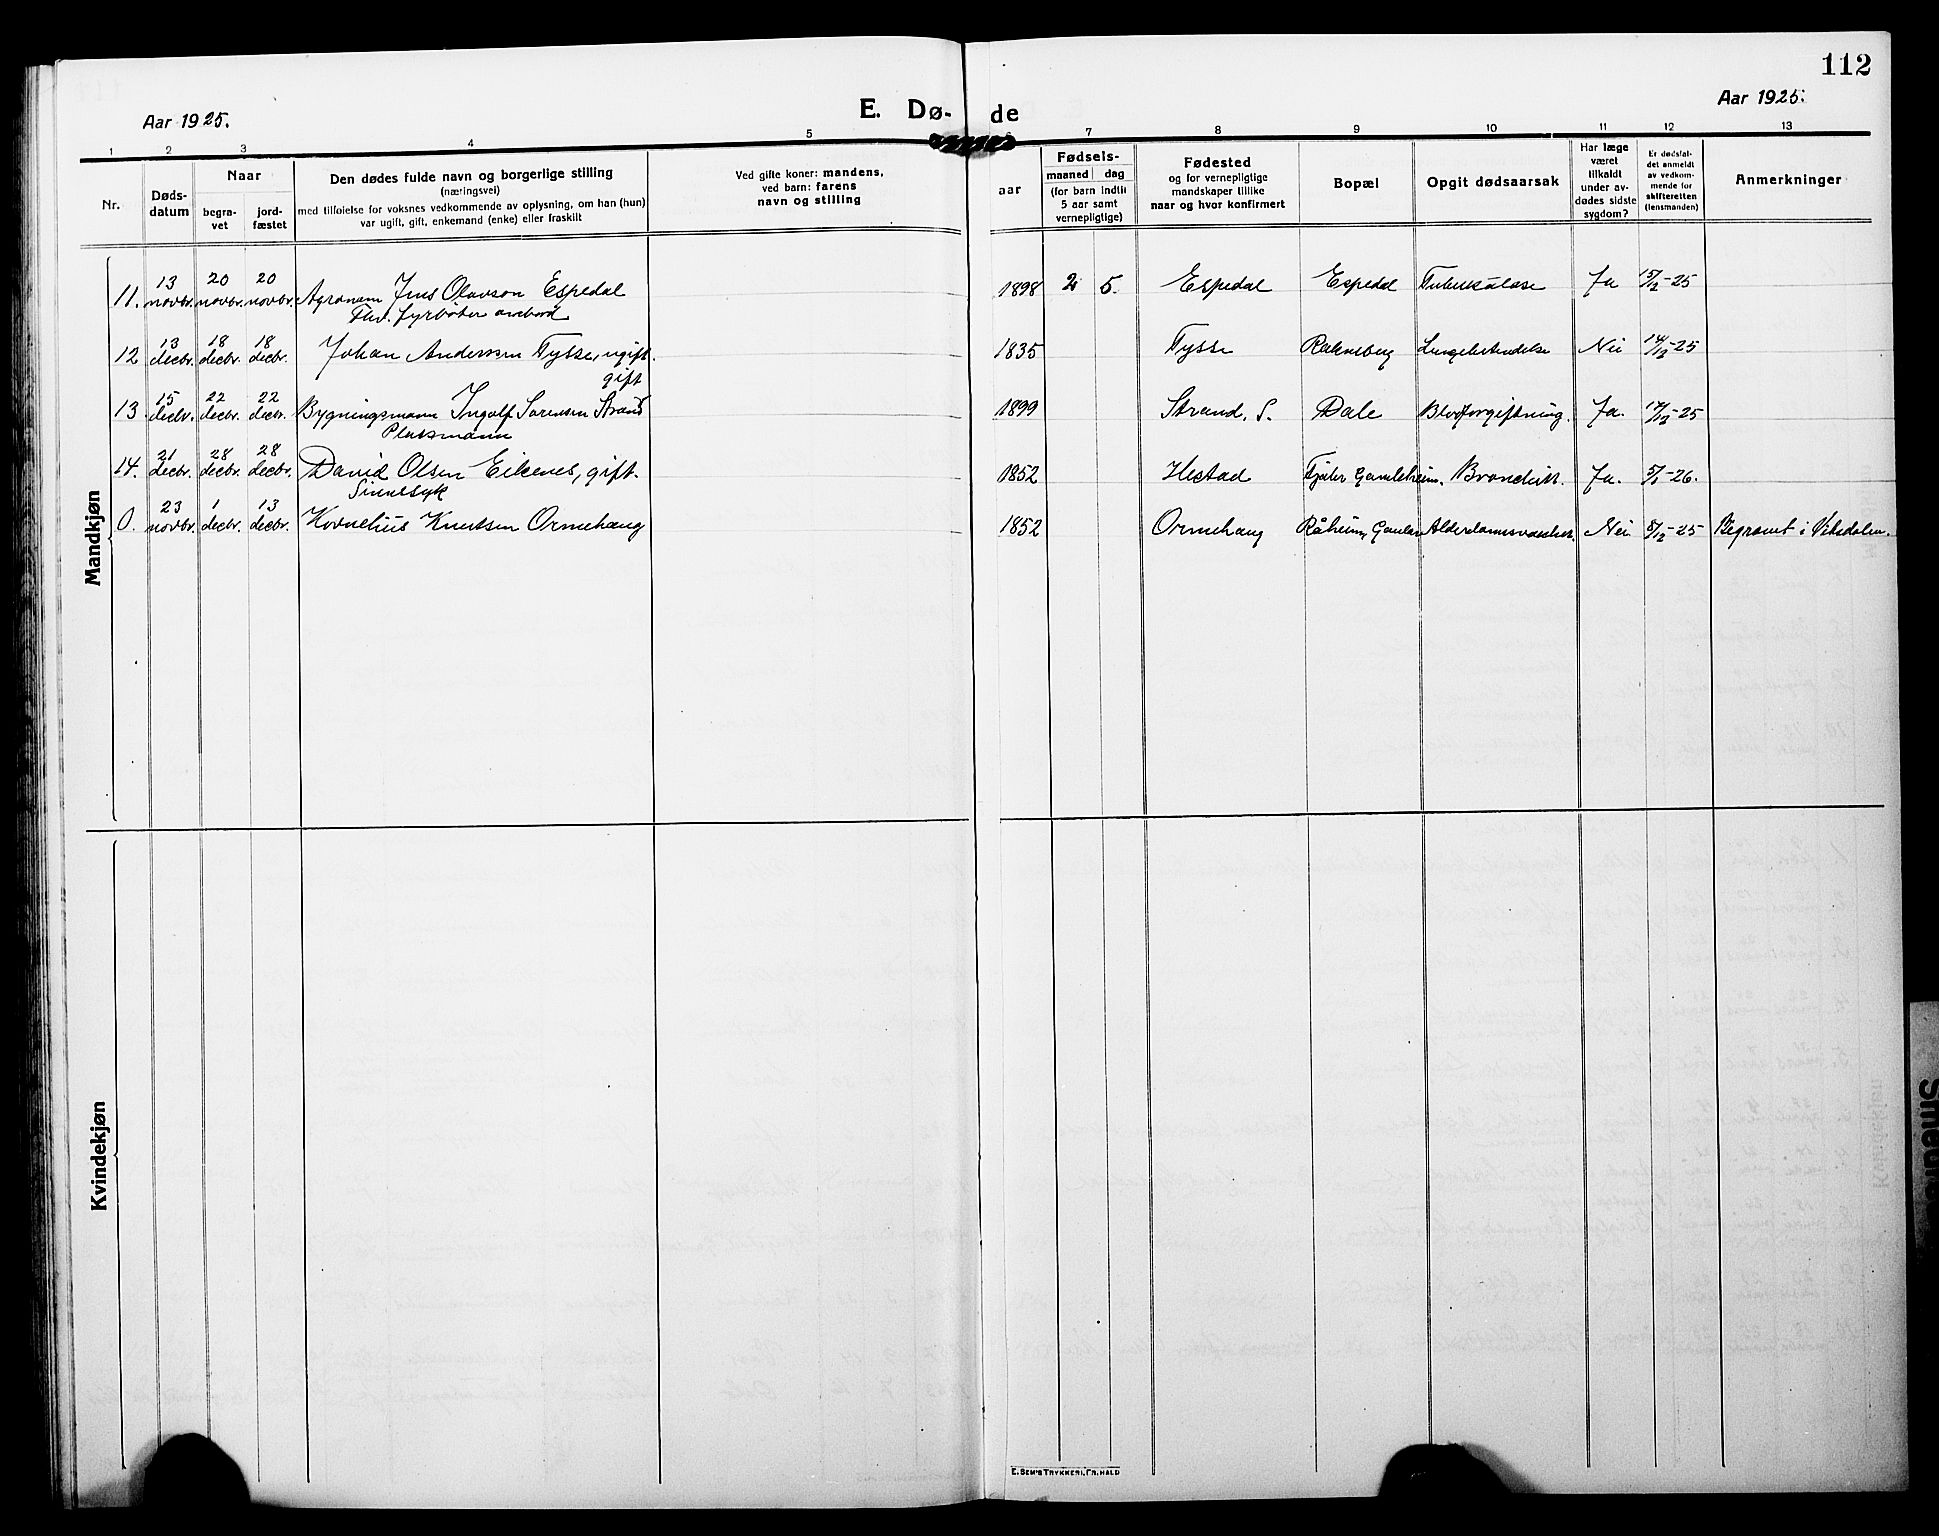 112
Aar 1925.
E. Dø-
de
Aar 1925.
1 2 3 4 5 6 7 8 9 10 11 12 13
Nr.
Døds-
datum
Naar
begra-
vet
jord-
fæstet
Den dødes fulde navn og borgerlige stilling
(næringsvei)
med tilføielse for voksnes vedkommende av oplysning, om han (hun)
var ugift, gift, enkemand (enke) eller fraskilt
Ved gifte koner: mandens,
ved barn: farens
navn og stilling
aar
Fødsels-
maaned dag
(for barn indtil
5 aar samt
vernepligtige)
Fødested
og for vernepligtige
mandskaper tillike
naar og hvor konfirmert
Bopæl
Opgit dødsaarsak
Har læge
været
tilkaldt
under av-
dødes sidste
sygdom?
Er dødsfal-
det anmeldt
av vedkom-
mende for
skifteretten
(lensmanden)
Anmerkninger
Mandkjøn
11. 13 novbr. 20 novbr. 20 novbr. Agronom Jens Olavson Espedal 1898 2 5. Espedal Espedal Tuberkulose Ja 15/12-25
Fhv. fyrbøter ombord
12 13 decbr. 18 decbr. 18 decbr. Johan Anderssen Tysse, ugift. 1835 Tysse Lungebetendelse Nei 14/12-25
gift
13 15 decbr. 22 decbr. 22 decbr. Bygningsmann Ingolf Sørensen Strand 1899 Strand, S. Dale Blodforgiftning. Ja. 17/12-25
Plassmann
14. 21 decbr. 28 decbr. 28 decbr. David Olsen Eikenes, gift. 1852 Hestad Fjaler Gamleheim. Ja. 5/1-26.
Sinnesyk
0. 23 novbr. 1 decbr. 13 decbr. Kornelius Knutsen Ormehaug 1852 Ormehaug Råheim, Gaular Alderdomssvakhet. Nei 8/12-25 Begravet i Viksdalen.
Kvindekjøn
E. SEM'S TRYKKERI, FR.HALD